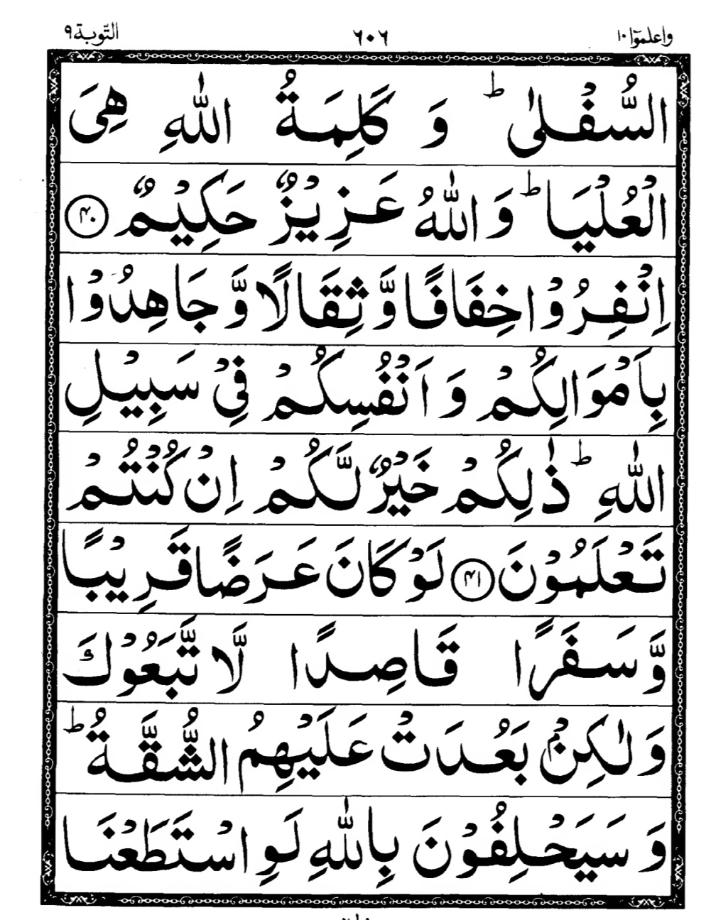 واعلموٓا ١٠ ٦٠٦ التّوبة ٩
السُّفۡلٰى ؕ وَ كَلِمَةُ اللّٰهِ هِىَ
الۡعُلۡيَا ؕ وَ اللّٰهُ عَزِيۡزٌ حَكِيۡمٌ ﴿۴۰﴾
اِنۡفِرُوۡا خِفَافًا وَّ ثِقَالًا وَّ جَاهِدُوۡا
بِاَمۡوَالِكُمۡ وَ اَنۡفُسِكُمۡ فِىۡ سَبِيۡلِ
اللّٰهِ ؕ ذٰلِكُمۡ خَيۡرٌ لَّكُمۡ اِنۡ كُنۡتُمۡ
تَعۡلَمُوۡنَ ﴿۴۱﴾ لَوۡ كَانَ عَرَضًا قَرِيۡبًا
وَّ سَفَرًا قَاصِدًا لَّا تَّبَعُوۡكَ
وَ لٰكِنۡۢ بَعُدَتۡ عَلَيۡهِمُ الشُّقَّةُ ؕ
وَ سَيَحۡلِفُوۡنَ بِاللّٰهِ لَوِ اسۡتَطَعۡنَا